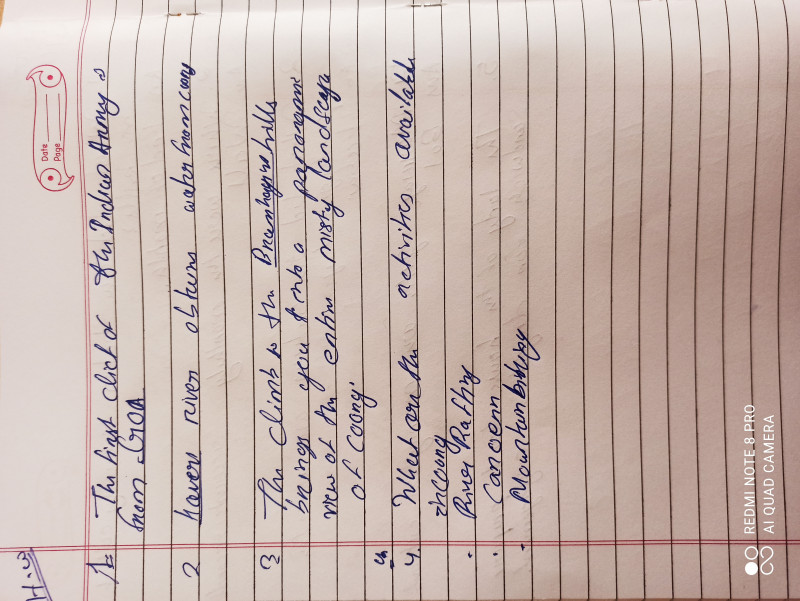 Date
Page
H.W
1= The first chief of the Indian Army is
from GOA
2 kavere river obtains water from coorg
3 The climb to the Bramhagiri hills
brings you into a panaromic
view of the entire misty landscape
of coorg.
4. What are the activities available
in coorg
• River Rafting
• Canoenn
• Mountain biking
REDMI NOTE 8 PRO
AI QUAD CAMERA